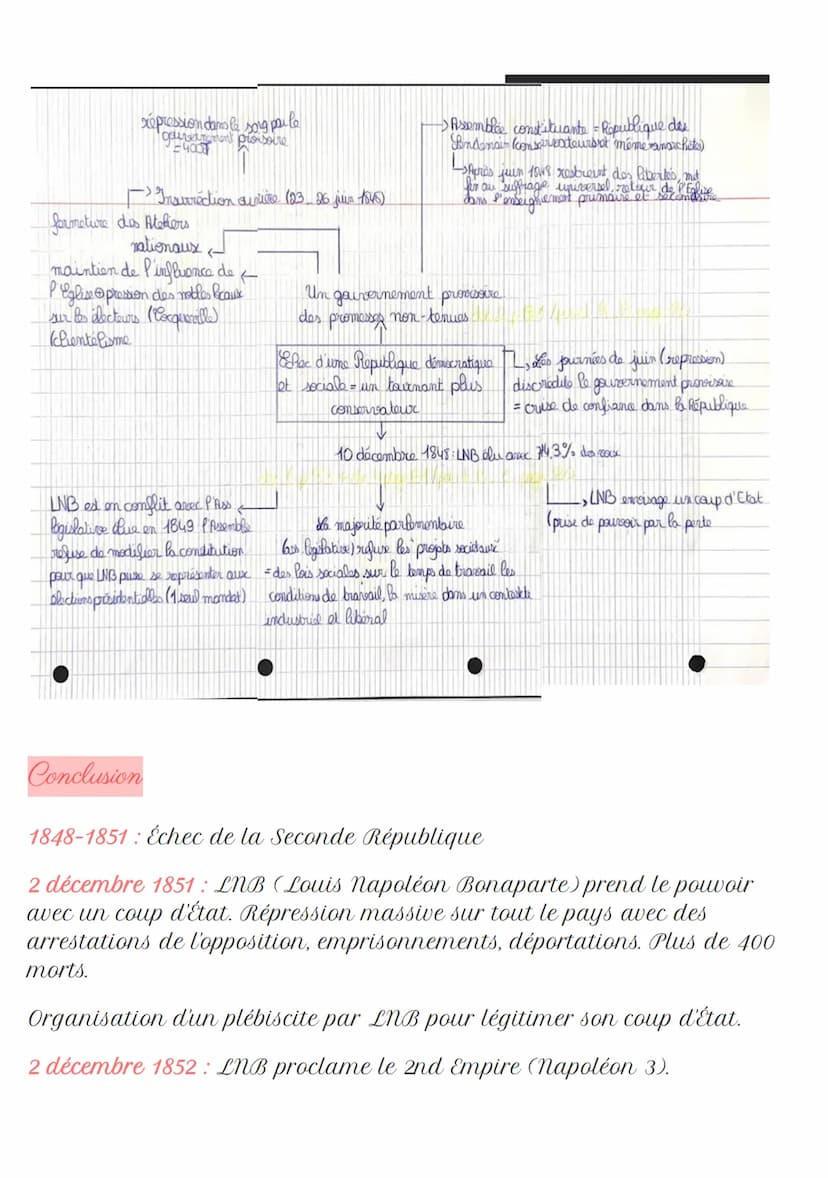 répression dans le sang par le
gouvernement provisoire
= 4000
→ Assemblée constituante = République des
Lendemain (conservateurs et même monarchistes)
→ Après juin 1848 restreint des libertés, met
fin au suffrage universel, retour de l'Eglise
dans l'enseignement primaire et secondaire
→ Insurrection ouvrière (23_26 juin 1848)
fermeture des Ateliers
nationaux
maintien de l'influence de
l'Eglise ⊕ pression des notables locaux
sur les électeurs (Tocqueville)
(clientélisme
Un gouvernement provisoire
des promesses non-tenues
Echec d'une République démocratique
et sociale = un tournant plus
conservateur
↳ Les journées de juin (répression)
discrédite le gouvernement provisoire
= crise de confiance dans la République
10 décembre 1848 : LNB élu avec 74,3% des voix
LNB est en conflit avec l'Ass
législative élue en 1849 l'Assemblé
refuse de modifier la constitution
pour que LNB puisse se représenter aux
élections présidentielles (1 seul mandat)
La majorité parlementaire
(ass législative) refuse les projets sociaux
= des lois sociales sur le temps de travail les
conditions de travail, la misère dans un contexte
industriel et libéral
→ LNB envisage un coup d'Etat
(prise de pouvoir par la
Conclusion
1848-1851 : Échec de la Seconde République
2 décembre 1851 : LNB (Louis Napoléon Bonaparte) prend le pouvoir
avec un coup d'État. Répression massive sur tout le pays avec des
arrestations de l'opposition, emprisonnements, déportations. Plus de 400
morts.
Organisation d'un plébiscite par LNB pour légitimer son coup d'État.
2 décembre 1852 : LNB proclame le 2nd Empire (Napoléon 3).